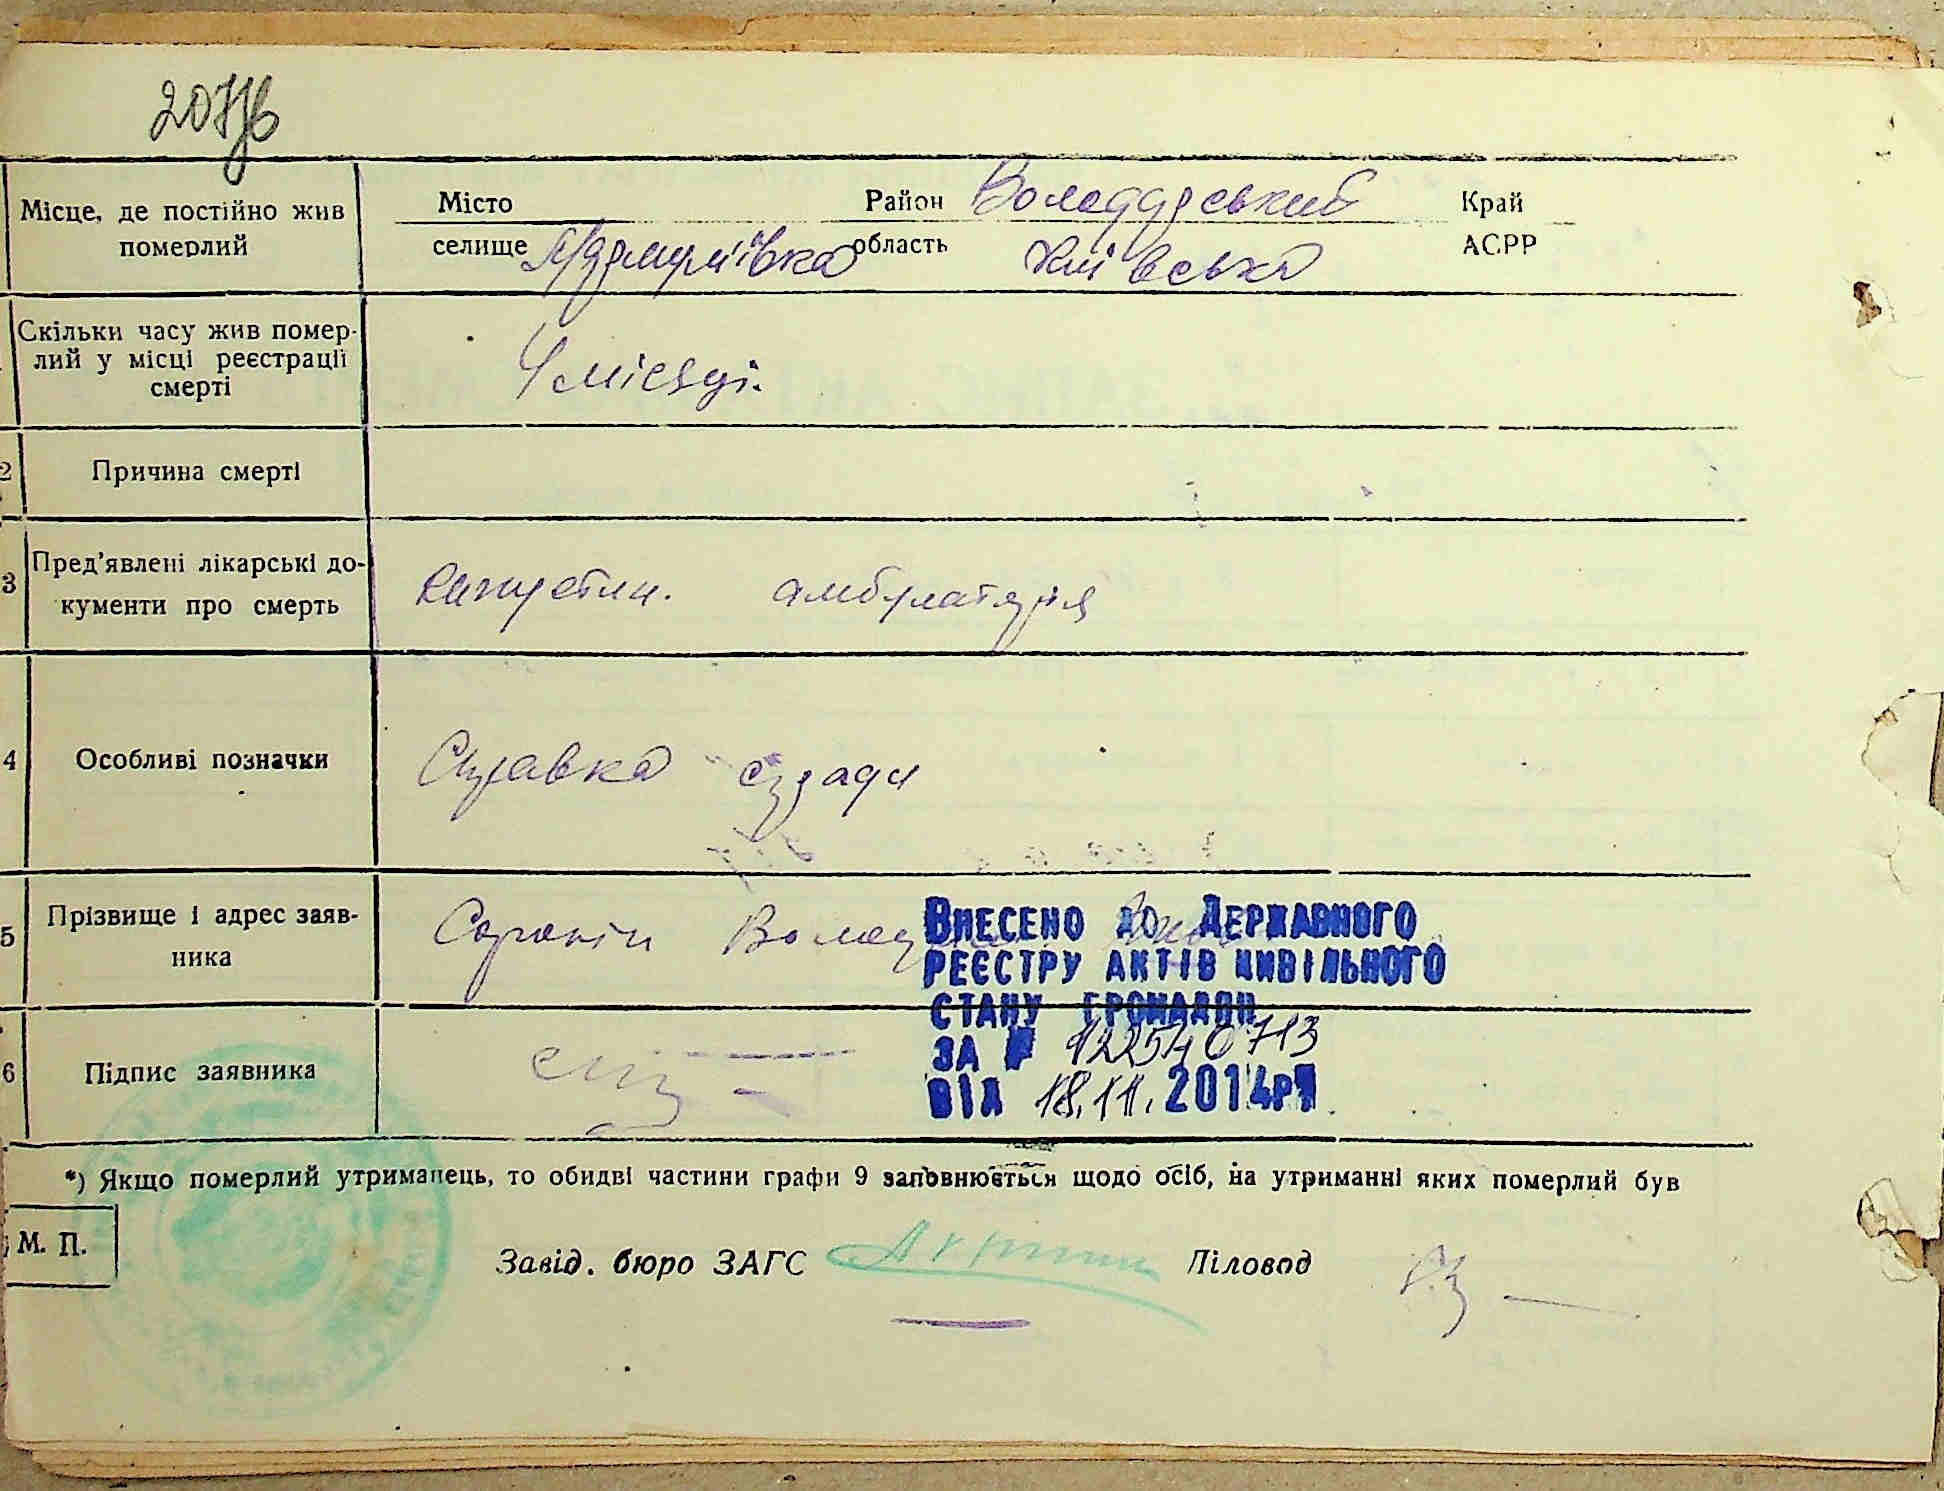 Місце, де постійно жив
померлий
Місто Район Володарський Край
селище область Київська АСРР
Скільки часу жив помер-
лий у місці реєстрації
смерті
4 місяці.
2 Причина смерті
3 Пред'явлені лікарські до-
кументи про смерть
амбулаторія
4 Особливі позначки
Справка сзади
5 Прізвище і адрес заяв-
ника
Сорокін
Внесено до Державного
реєстру актів цивільного
стану громадян
за № 122540713
від 18.11.2014р.
6 Підпис заявника
*) Якщо померлий утриманець, то обидві частини графи 9 заповнюється щодо осіб, на утриманні яких померлий був
М. П.
Завід. бюро ЗАГС Діловод